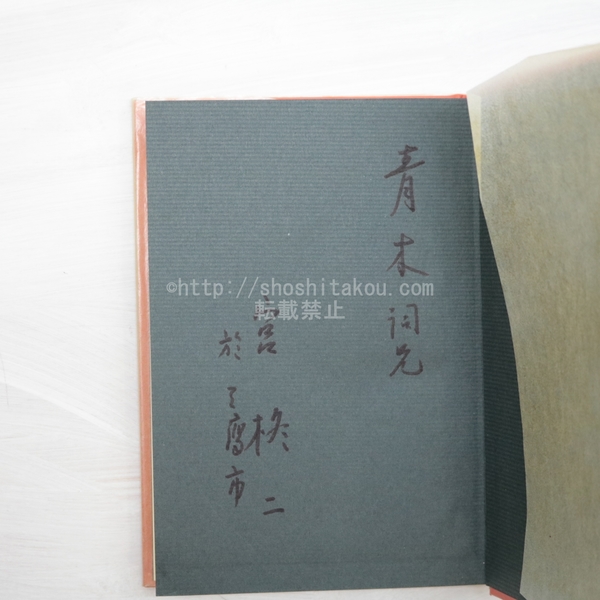 青木詞兄
宮柊二
於三鷹市
©http://shoshitakou.com
転載禁止